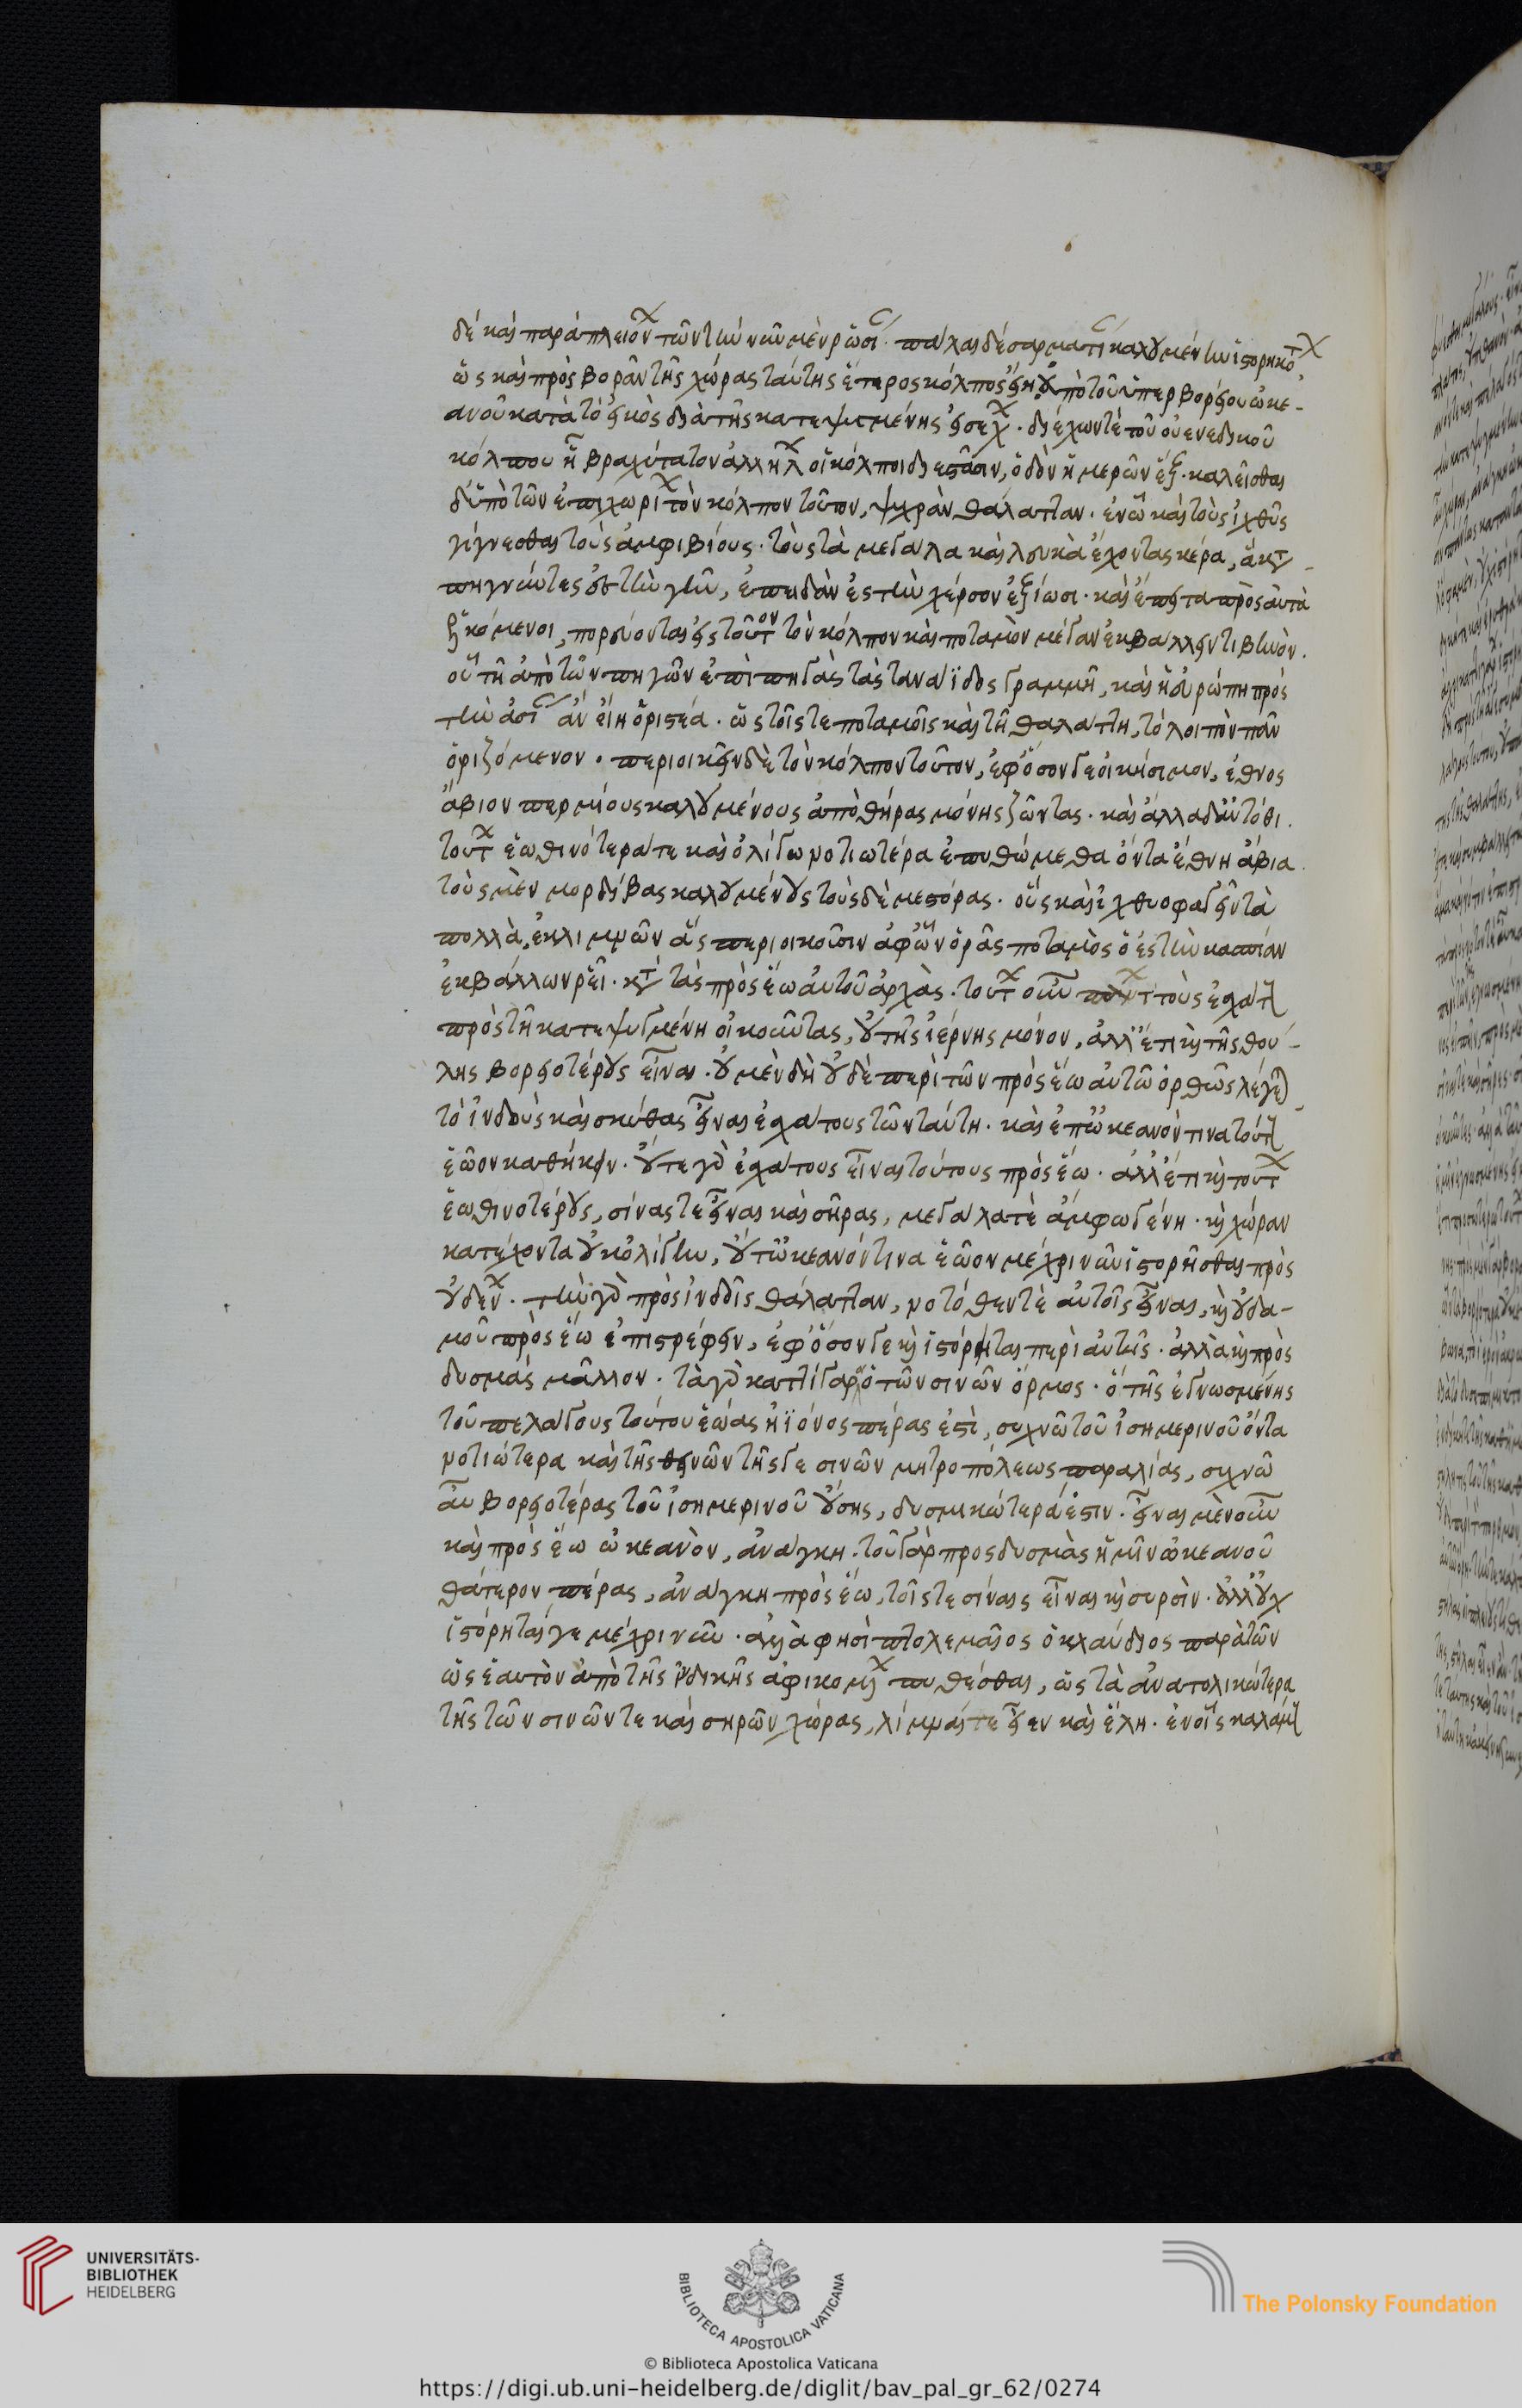 δὲ καὶ παρὰ πλειόνων τῶν τὴν νῦν μὲν ῥωσίαν πάλαι δὲ σαρματίαν καλουμένην ἱστορηκότων
ὡς καὶ πρὸς βορρᾶν τῆς χώρας ταύτης ἕτερος κόλπος εἴη ἀπὸ τοῦ ὑπερβορείου ὠκε-
ανοῦ κατὰ τὸ εἰκὸς διὰ τῆς κατεψυγμένης εἰσέχων. διέχων τὲ τοῦ οὐενεδικοῦ
κόλπου ᾗ βραχύτατον ἀλλήλων οἱ κόλποι διεστᾶσιν, ὁδὸν ἡμερῶν ἓξ. καλεῖσθαι
δ' ὑπὸ τῶν ἐπιχωρίων τὸν κόλπον τοῦτον, ψυχρὰν θάλατταν. ἐν ᾧ καὶ τοὺς ἰχθῦς
γίγνεσθαι τοὺς ἀμφιβίους. τοὺς τὰ μεγάλα καὶ λευκὰ ἔχοντας κέρα, ἅ κατα-
πηγνύντες εἰς τὴν γῆν, ἐπειδὰν ἐς τὴν χέρσον ἐξίωσι. καὶ ἔπειτα πρὸς αὐτὰ
ἑλκόμενοι, πορεύονται εἰς τοῦτον τὸν κόλπον καὶ ποταμὸν μέγαν ἐκβάλλειν τιβινόν.
οὗ τῇ ἀπὸ τῶν πηγῶν ἐπὶ πηγὰς τὰς ταναΐδος γραμμῇ, καὶ ἡ εὐρώπη πρὸς
τὴν ἀσίαν ἂν εἴη ὁριστέα. ὡς τοῖς τε ποταμοῖς καὶ τῇ θαλάττῃ, τὸ λοιπὸν πᾶν
ὁριζόμενον. περιοικεῖν δὲ τὸν κόλπον τοῦτον, ἐφ' ὅσον γε οἰκήσιμον, ἔθνος
ἄβιον περμίους καλουμένους ἀπὸ θήρας μόνης ζῶντας. καὶ ἄλλα δ' αὐτόθι
τούτων ἑωθινότερά τε καὶ ὀλίγῳ νοτιωτέρα ἐπυθώμεθα ὄντα ἔθνη ἄβια
τοὺς μὲν μορδίβας καλουμένους τοὺς δὲ μεστόρας. οὓς καὶ ἰχθυοφαγεῖν τὰ
πολλὰ, ἐκ λιμνῶν ἃς περιοικοῦσιν ἀφ' ὧν ὁ ρᾶς ποταμὸς ὁ ἐς τὴν κασπίαν
ἐκβάλλων ῥεῖ. κατὰ τὰς πρὸς ἕω αὐτοῦ ἀρχὰς. τούτων οὖν πάντων τοὺς ἐσχάτους
πρὸς τῇ κατεψυγμένῃ οἰκοῦντας, οὐ τῆς ἰέρνης μόνον, ἀλλ' ἔτι καὶ τῆς θού-
λης βορειοτέρους εἶναι. οὐ μὲν δὴ οὐδὲ περὶ τῶν πρὸς ἕω αὐτῷ ὀρθῶς λέγεται
τὸ ἰνδοὺς καὶ σκύθας εἶναι ἐσχάτους τῶν ταύτῃ. καὶ ἐπ' ὠκεανόν τινα τούτους
ἑῷον καθήκειν. οὔτε γὰρ ἐσχάτους εἶναι τούτους πρὸς ἕω. ἀλλ' ἔτι καὶ τούτων
ἑωθινοτέρους, σίνας τε εἶναι καὶ σῆρας, μεγάλα τὲ ἄμφω γένη. καὶ χώραν
κατέχοντα οὐκ ὀλίγην, οὔτ' ὠκεανόν τινα ἑῷον μέχρι νῦν ἱστορῆσθαι πρὸς
οὐδένων. τὴν γὰρ πρὸς ἰνδοῖς θάλατταν, νοτόθεν τὲ αὐτοῖς εἶναι, καὶ οὐδα-
μοῦ πρὸς ἕω ἐπιστρέφειν, ἐφ' ὅσον γε καὶ ἱστόρηται περὶ αὐτῆς. ἀλλὰ καὶ πρὸς
δυσμὰς μᾶλλον. τὰ γὰρ κατίγαρα ὁ τῶν σινῶν ὅρμος. ὃ τῆς ἐγνωσμένης
τοῦ πελάγους τούτου ἑῴας ἠϊόνος πέρας ἐστὶ, συχνῷ τοῦ ἰσημερινοῦ ὄντα
νοτιώτερα καὶ τῆς θεινῶν τῆς γε σινῶν μητροπόλεως παραλίας, συχνῷ
αὖ βορειοτέρας τοῦ ἰσημερινοῦ οὔσης, δυσμικώτερά ἐστιν. εἶναι μὲν οὖν
καὶ πρὸς ἕω ὠκεανὸν, ἀνάγκη. τοῦ γὰρ πρὸς δυσμὰς ἡμῖν ὠκεανοῦ
θάτερον πέρας, ἀνάγκη πρὸς ἕω, τοῖς τε σίναις εἶναι καὶ συρσὶν. ἀλλ' οὐχ
ἱστόρηταί γε μέχρι νῦν. ἀλλὰ φησὶ πτολεμαῖος ὁ κλαύδιος παρὰ τῶν
ὡς ἑαυτὸν ἀπὸ τῆς ἰνδικῆς ἀφικομένων πυθέσθαι, ὡς τὰ ἀνατολικώτερα
τῆς τῶν σινῶν τε καὶ σηρῶν χώρας, λίμναι τε εἶεν καὶ ἕλη. ἐν οἷς καλάμους
UNIVERSITÄTS-
BIBLIOTHEK
HEIDELBERG
BIBLIOTECA APOSTOLICA VATICANA
The Polonsky Foundation
© Biblioteca Apostolica Vaticana
https://digi.ub.uni-heidelberg.de/diglit/bav_pal_gr_62/0274